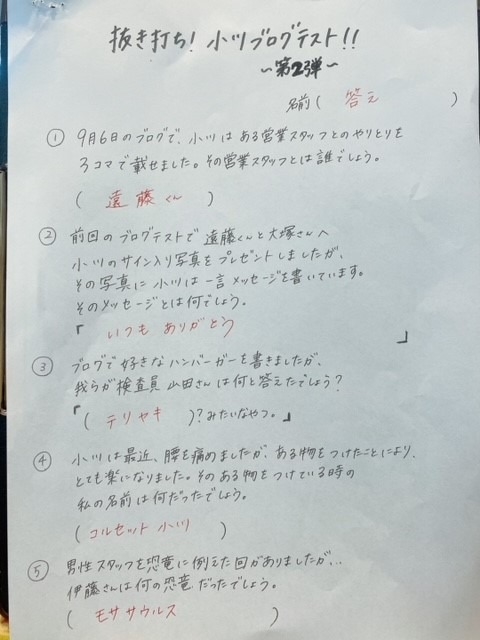 抜き打ち! 小川ブログテスト!!
〜第2弾〜
名前( 答え )
① 9月6日のブログで、小川はある営業スタッフとのやりとりを
3コマで載せました。その営業スタッフとは誰でしょう。
( 遠藤くん )
② 前回のブログテストで遠藤くんと大塚さんへ
小川のサイン入り写真をプレゼントしましたが、
その写真に小川は一言メッセージを書いています。
そのメッセージとは何でしょう。
「 いつもありがとう 」
③ ブログで好きなハンバーガーを書きましたが、
我らが検査員山田さんは何と答えたでしょう?
「( テリヤキ )?みたいなやつ。」
④ 小川は最近、腰を痛めましたが、ある物をつけたことにより、
とても楽になりました。そのある物をつけている時の
私の名前は何だったでしょう。
( コルセット小川 )
⑤ 男性スタッフを恐竜に例えた回がありましたが、..
伊藤さんは何の恐竜だったでしょう。
( モササウルス )